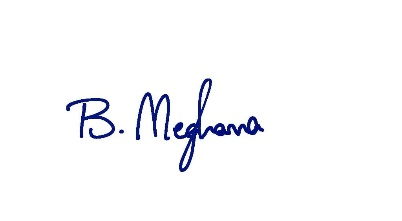 B. Meghana